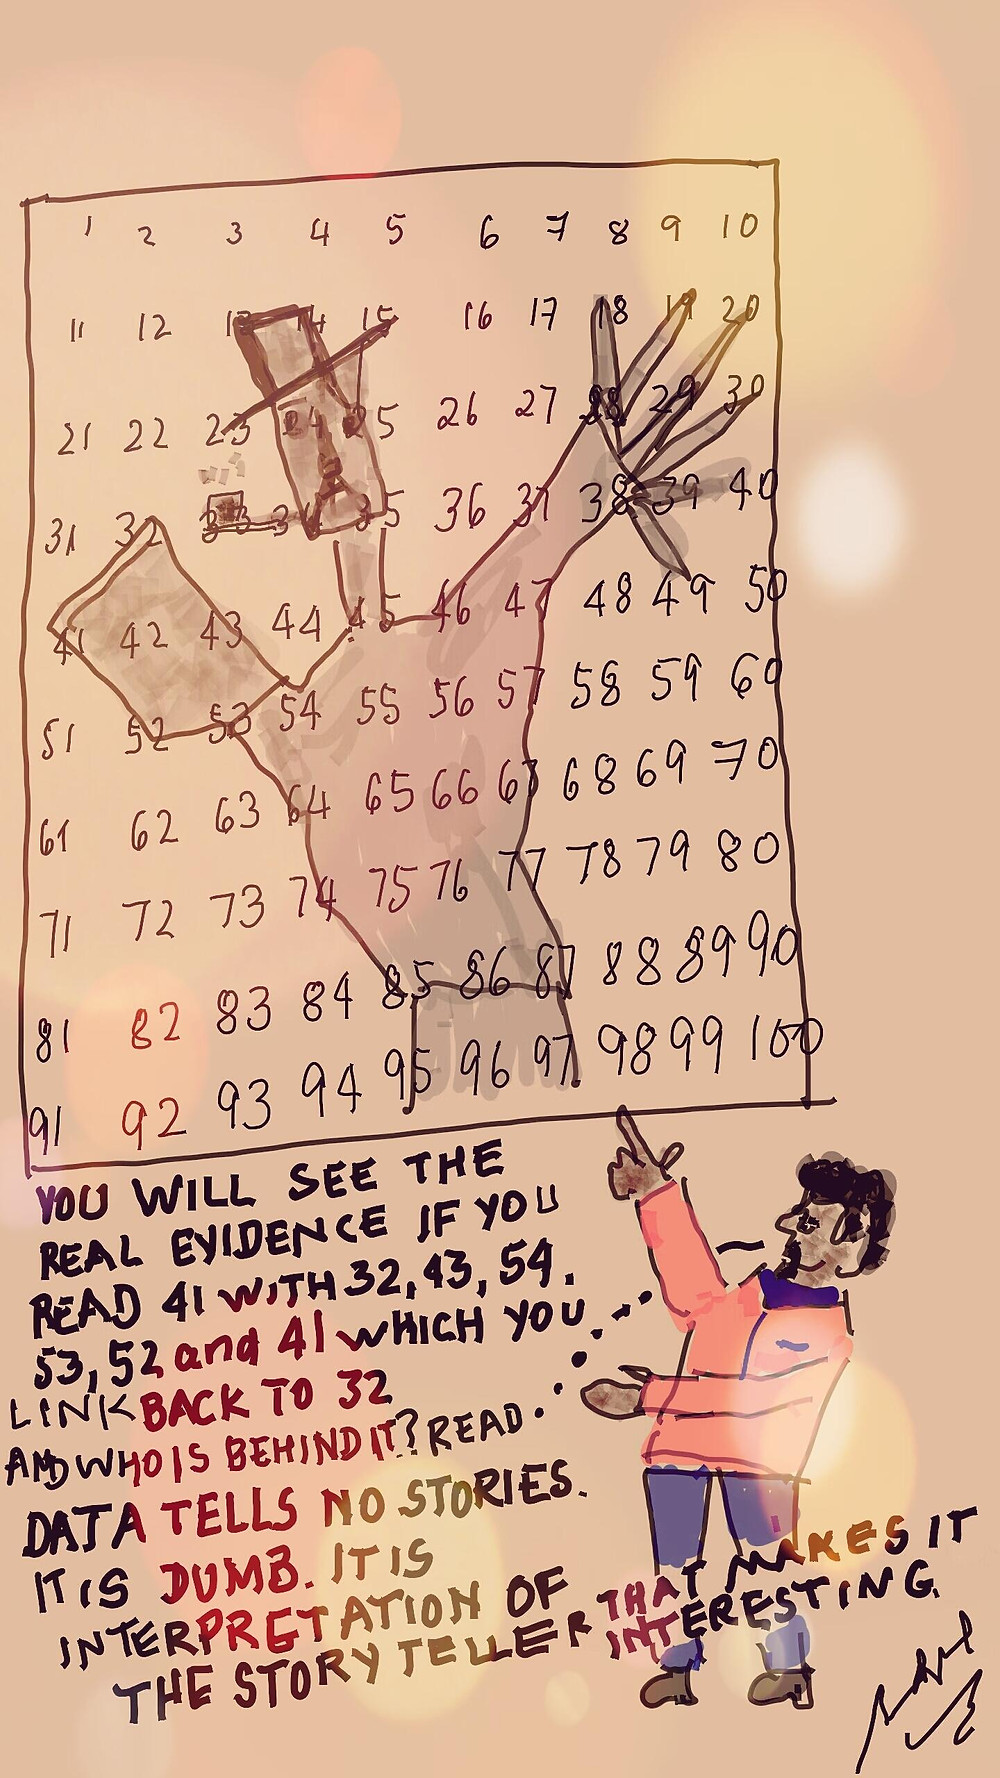 1 2 3 4 5 6 7 8 9 10
11 12 13 14 15 16 17 18 19 20
21 22 23 24 25 26 27 28 29 30
31 32 33 34 35 36 37 38 39 40
41 42 43 44 45 46 47 48 49 50
51 52 53 54 55 56 57 58 59 60
61 62 63 64 65 66 67 68 69 70
71 72 73 74 75 76 77 78 79 80
81 82 83 84 85 86 87 88 89 90
91 92 93 94 95 96 97 98 99 100
YOU WILL SEE THE
REAL EVIDENCE IF YOU
READ 41 WITH 32, 43, 54.
53, 52 and 41 WHICH YOU
LINK BACK TO 32
AND WHO IS BEHIND IT? READ.
DATA TELLS NO STORIES.
IT IS DUMB. IT IS
INTERPRETATION OF
THE STORY TELLER THAT MAKES IT
INTERESTING.